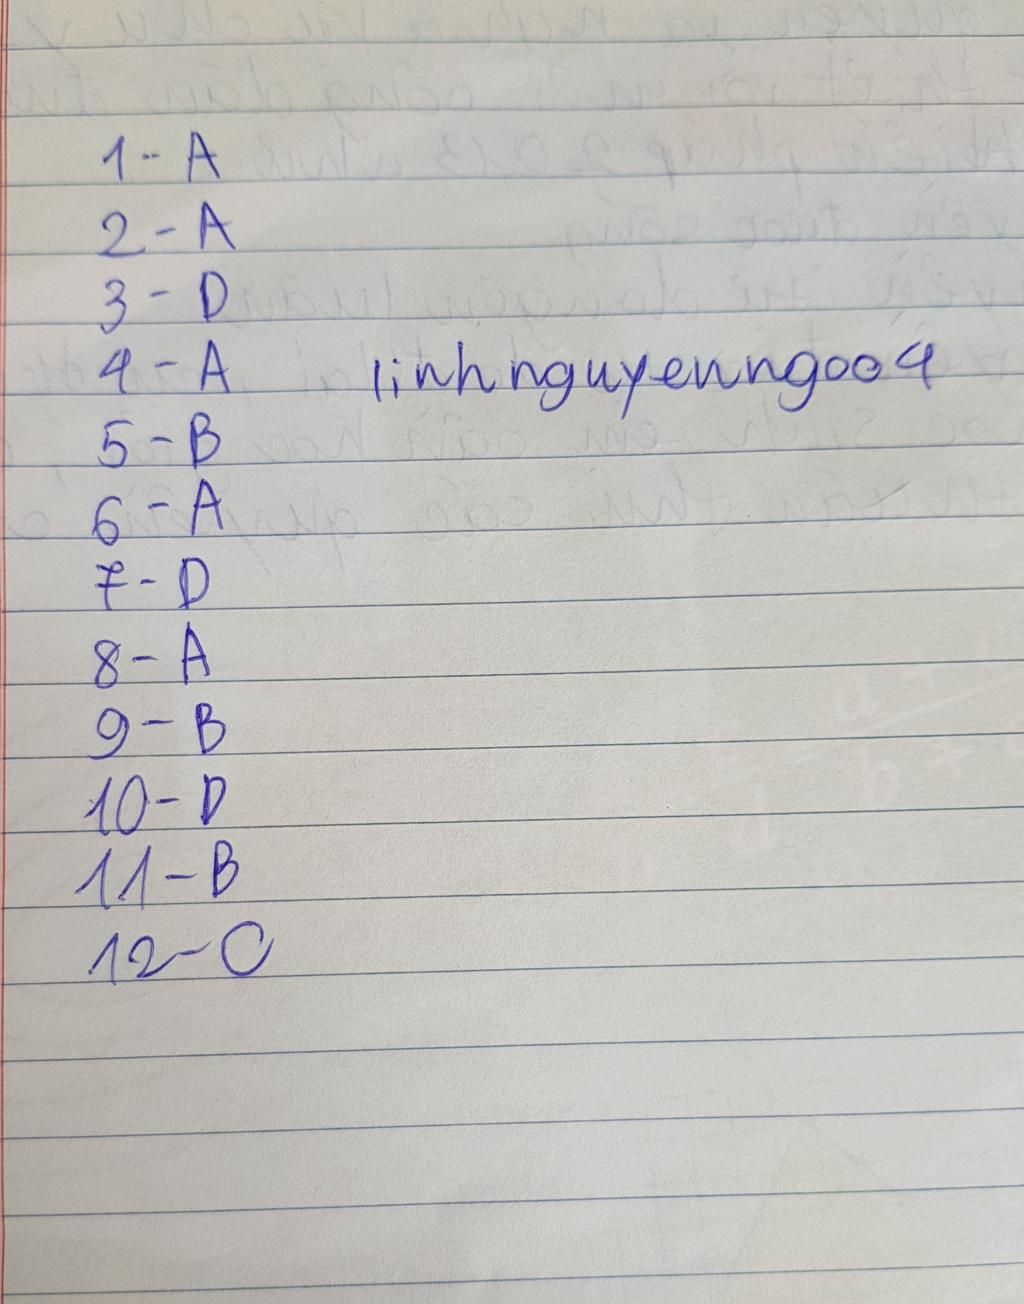 1 - A
2 - A
3 - D
4 - A linhnguyenngoo4
5 - B
6 - A
7 - D
8 - A
9 - B
10 - D
11 - B
12 - C